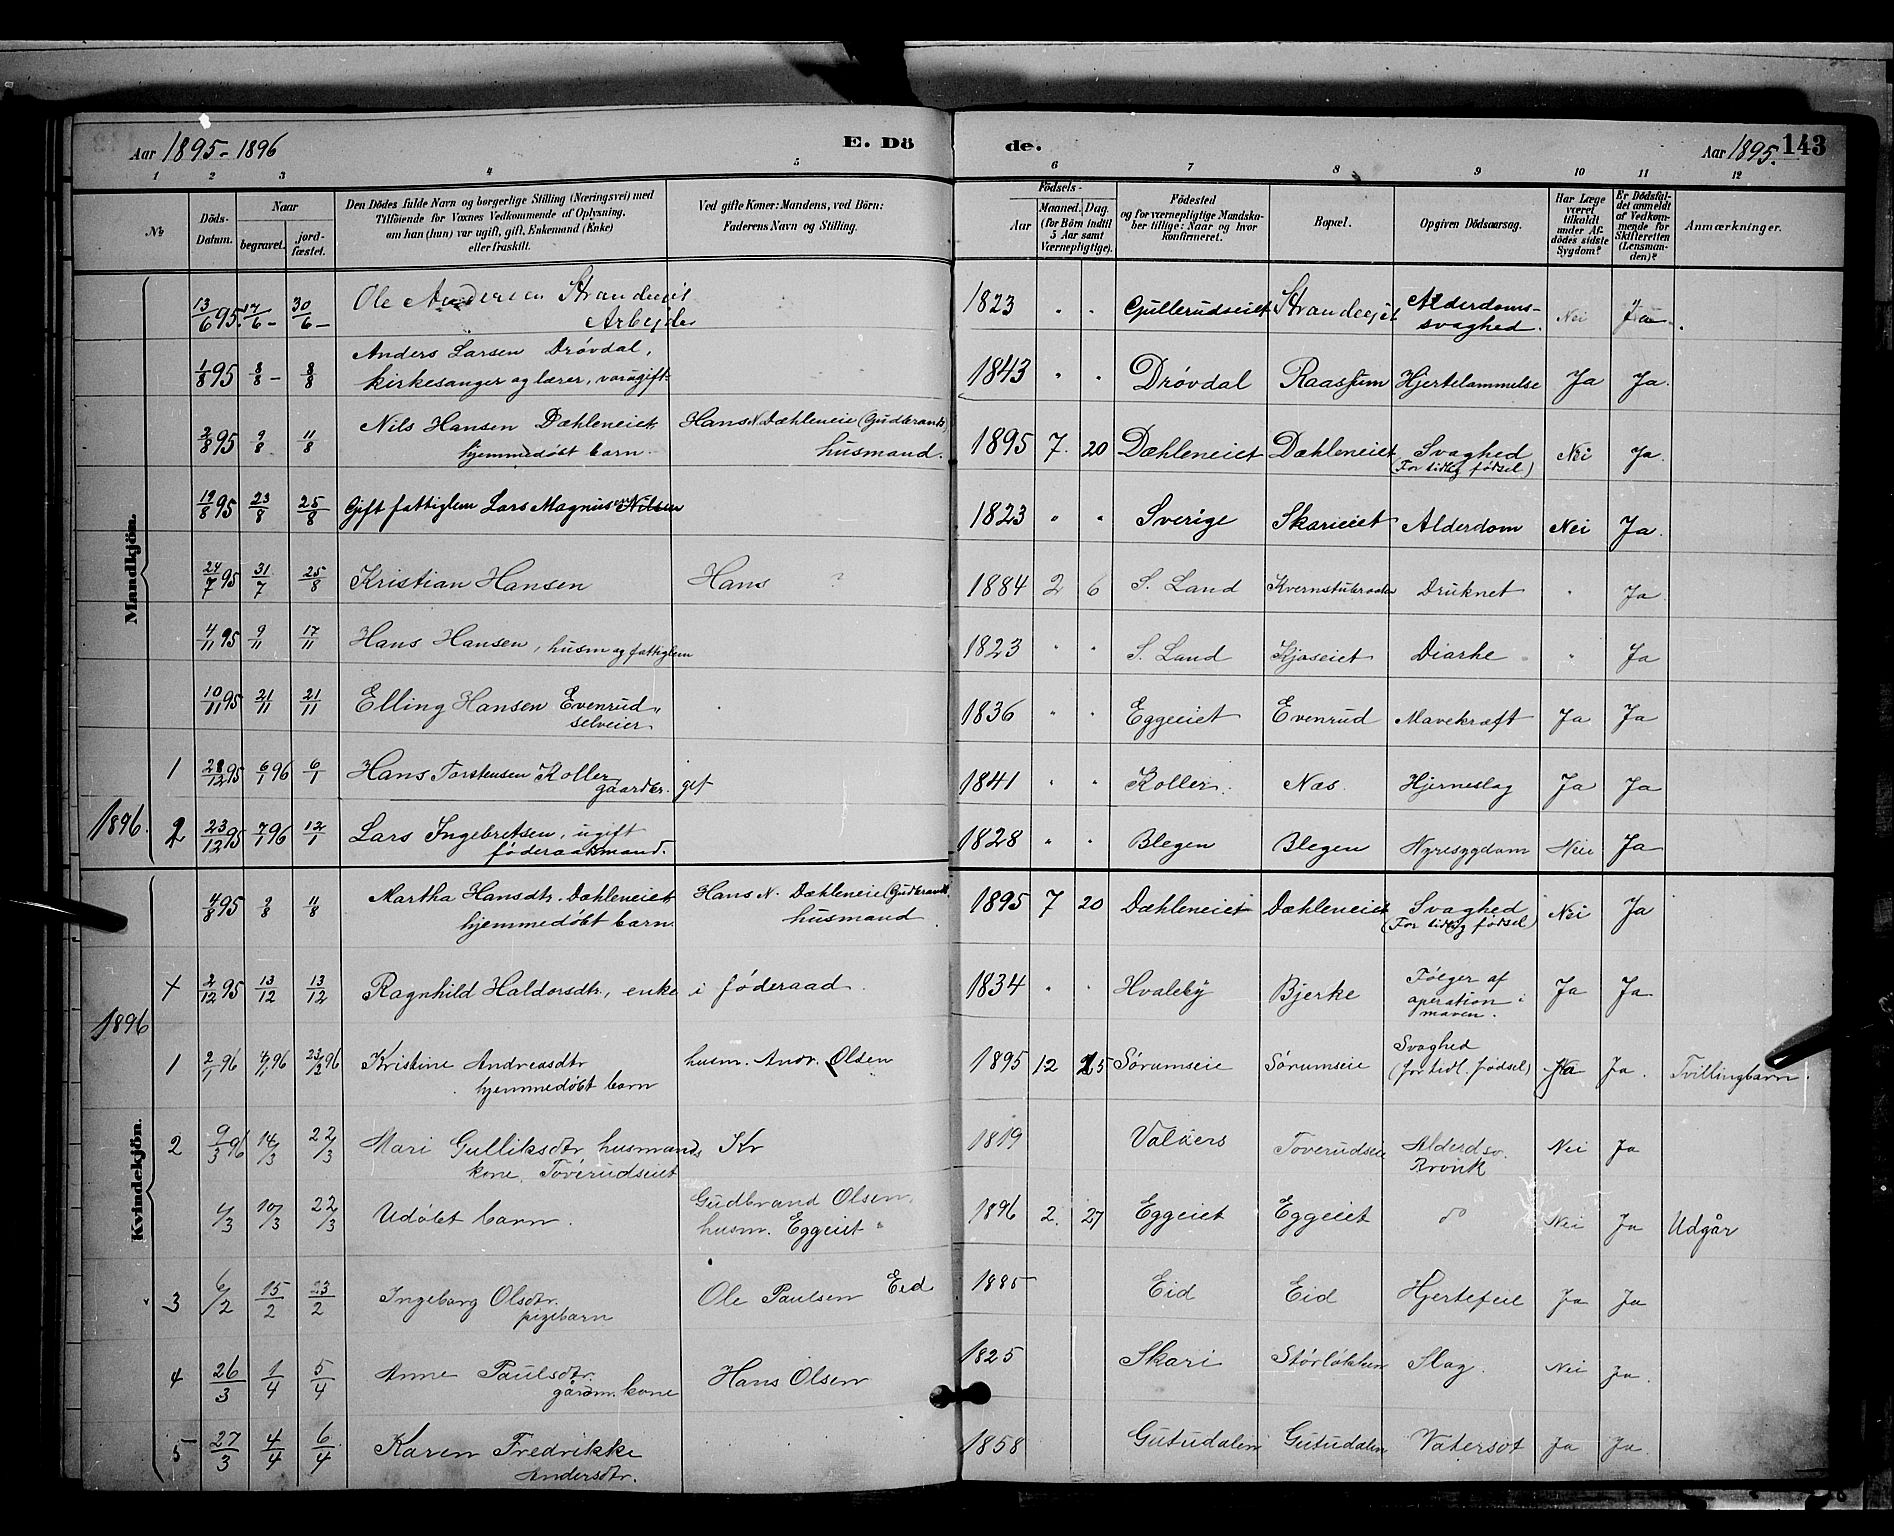 Aar 1895-1896
E. Dö
de.
Aar 1895.
143
1 2 3 4 5 6 7 8 9 10 11 12
No
Döds-Datum.
Naar
begravet.
jordfæstet.
Den Dödes fulde Navn og borgerlige Stilling (Næringsvei) med
Tilföiende for Voxnes Vedkommende af Oplysning,
om han (hun) var ugift, gift, Enkemand (Enke)
eller fraskilt.
Ved gifte Koner: Mandens, ved Börn:
Faderens Navn og Stilling.
Födsels-
Aar
Maaned. Dag.
(for Börn indtil
5 Aar samt
Værnepligtige).
Födested
og for værnepligtige Mandskaber tillige: Naar og hvor
konfirmeret.
Bopæl.
Opgiven Dödsaarsag.
Har Læge været tilkaldt under Afdödes sidste Sygdom?
Er Dödsfaldet anmeldt af Vedkommende for Skifteretten (Lensmanden)?
Anmærkninger.
Mandkjön.
13/6 95. 17/6- 30/6- Ole Andersen Strandeeiet Arbejder 1823 " " Gullerudseiet Strandeejet Alderdoms-svaghed. Nei Ja.
1/8 95 8/8- 8/8 Anders Larsen Drövdal, kirkesanger og lærer, var ugift 1843 " " Drövdal Raassum Hjertelammelse Ja Ja.
2/8 95 9/8 11/8 Nils Hansen Dæhleneiet hjemmedöbt barn. Hans N. Dæhleneie (Gudbrands) husmand. 1895 7. 20 Dæhleneiet Dæhleneiet Svaghed (For tidlig födsel) Nei Ja.
19/8 95 23/8 25/8 Gift fattiglem Lars Magnussen Nilsen 1823 " " Sverige Skarieiet Alderdom Nei Ja.
24/7 95 31/7 25/8 Kristian Hansen Hans ? 1884 2 6 S. Land Kvernstubraaten Druknet " Ja.
4/11 95 9/11 17/11 Hans Hansen, husm og fattiglem 1823 " " S. Land Kjoseiet Diarhe " Ja
10/11 95 21/11 21/11 Elling Hansen Evenrud, selveier 1836 " " Eggeeiet Evenrud Mavekræft Ja Ja
1 28/12 95 6/1 96 6/1 Hans Torstensen Koller gaardbr. gift 1841 " " Koller. Næs. Hjerneslag Ja Ja
1896. 2 23/12 95 7/1 96 12/1 Lars Ingebretsen, ugift föderaadmand. 1828 " " Blegen Blegen Nyresygdom Nei Ja
Kvindekjön.
4/8 95 9/8 11/8 Martha Hansdtr. Dæhleneiet hjemmedöbt barn. Hans N. Dæhleneie (Gudbrands) husmand 1895 7 20 Dæhleneiet Dæhleneiet Svaghed (For tidlig födsel) Nei Ja
x 2/12 95 13/12 13/12 Ragnhild Haldorsdtr, enke i föderaad. 1834 " " Hvaleby Bjerke Fölger af operation i maven. Ja Ja
1896
1 2/1 96 4/1 96 23/2 96 Kristine Andreasdtr hjemmedöbt barn husm. Andr. Olsen 1895 12 25 Sörumseie Sörumseie Svaghed (for tidl. födsel) Ja Ja. Tvillingbarn.
2 9/3 96 14/3 22/3 Mari Gulliksdtr, husmands kone, Toverudseiet Kr 1819 Valders Toverudseie Alderdsv. Bronk Nei Ja
4/3 10/3 22/3 Udöbt barn. Gudbrand Olsen, husm. Eggeiet 1896 2. 27 Eggeiet Eggeiet do Nei Ja Udgår
3 6/2 15/2 23/2 Ingeborg Olsdtr. pigebarn Ole Paulsen Eid 1885 Eid Eid Hjertefeil Ja Ja
4 26/3 1/4 5/4 Anne Paulsdtr. gårdm. kone Hans Olsen 1825 Skari Störlökken Slag. Nei Ja.
5 27/3 4/4 6/4 Karen Fredrikke Andersdtr. 1858 Gutudalen Gutudalen Vatersot Ja Ja.